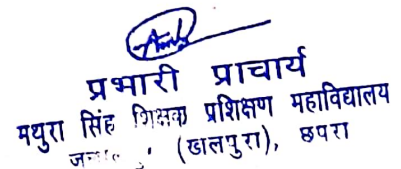 प्रभारी प्राचार्य
मथुरा सिंह शिक्षक प्रशिक्षण महाविद्यालय
(खलपुरा), छपरा